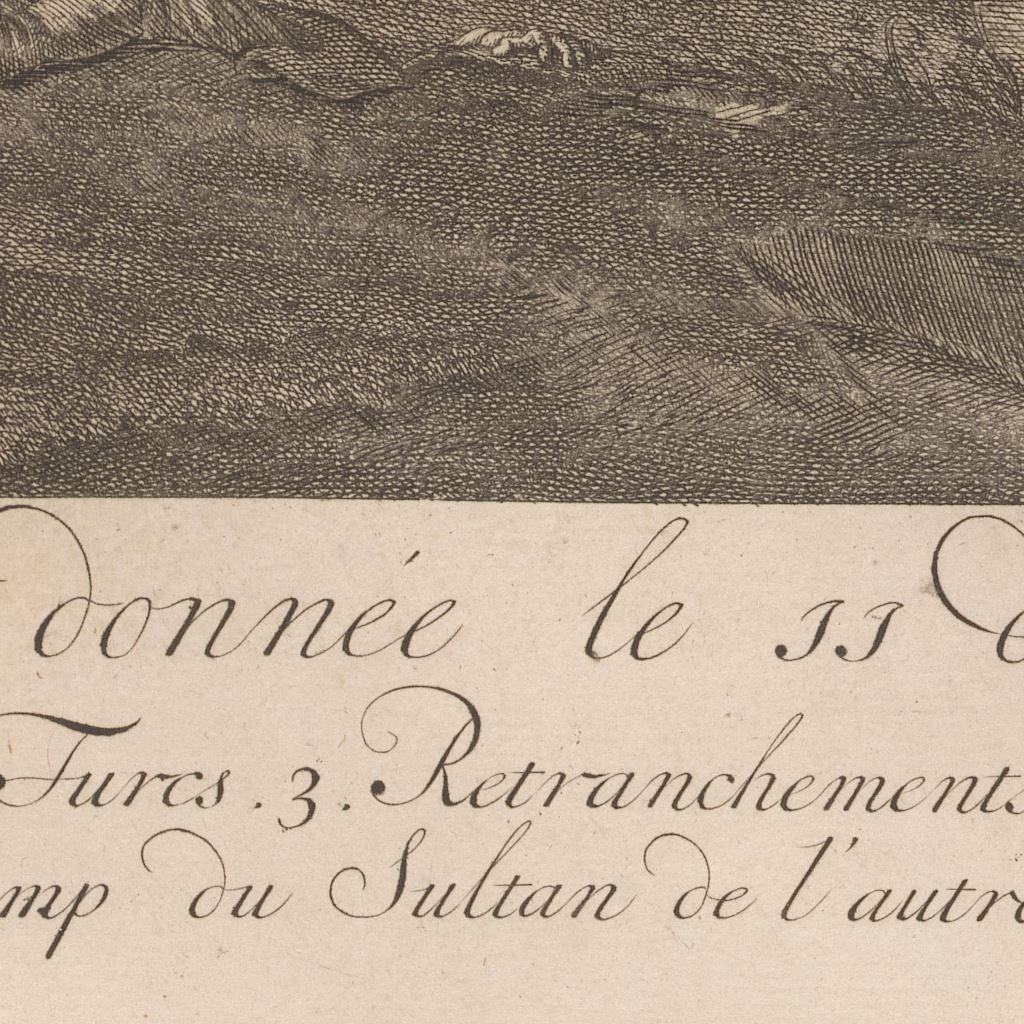 donnée le 11
Turcs . 3 . Retranchements
mp du Sultan de l'autre